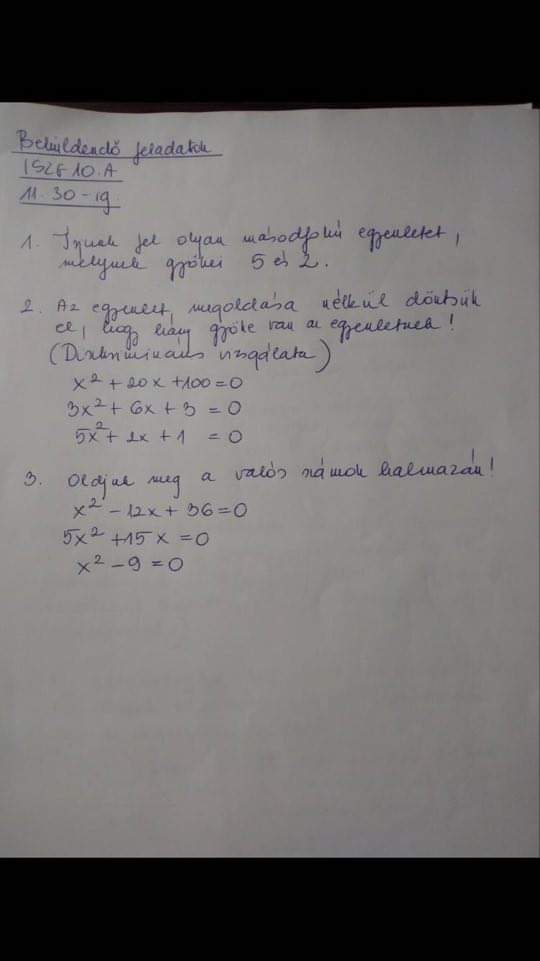 Beküldendő feladatok
ISZE 10.A
11.30-ig.
1. Írjuk fel olyan másodfokú egyenletet,
melynek gyökei 5 és 2.
2. Az egyenlet megoldása nélkül döntsük
el, hogy hány gyöke van az egyenletnek!
(Diszkrimináns vizsgálata)
x² + 20x + 100 = 0
3x² + 6x + 3 = 0
5x² + 2x + 1 = 0
3. Oldjuk meg a valós számok halmazán!
x² - 12x + 36 = 0
5x² + 15x = 0
x² - 9 = 0